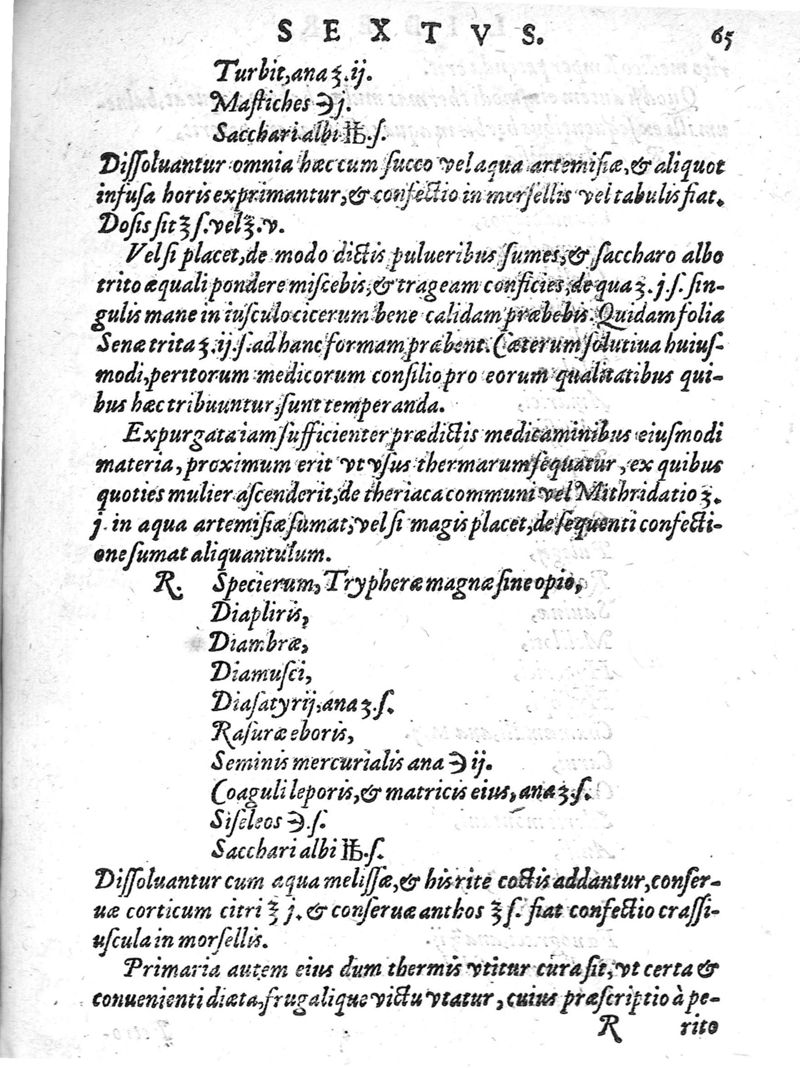 SEXTVS. 65
Turbit, ana ʒ.ij.
Maſtiches ℈j.
Sacchari albi ℔.ſ.
Diſſoluantur omnia hæc cum ſucco vel aqua artemiſiæ, & aliquot
infuſa horis exprimantur, & confectio in morſellis vel tabulis fiat.
Doſis ſit ℥ ſ. vel ʒ. v.
Vel ſi placet, de modo dictis pulueribus ſumes, & ſaccharo albo
trito æquali pondere miſcebis, & trageam conficies, de qua ʒ. j. ſ. ſin-
gulis mane in iuſculo cicerum bene calidam præbebis. Quidam folia
Senæ trita ʒ. ij. ſ. ad hanc formam præbent. Cæterum ſolutiua huiuſ-
modi, peritorum medicorum conſilio pro eorum qualitatibus qui-
bus hæc tribuuntur, ſunt temperanda.
Expurgata iam ſufficienter prædictis medicaminibus eiuſmodi
materia, proximum erit vt vſus thermarum ſequatur, ex quibus
quoties mulier aſcenderit, de theriaca communi vel Mithridatio ʒ.
j. in aqua artemiſiæ ſumat, vel ſi magis placet, de ſequenti confecti-
one ſumat aliquantulum.
R. Specierum, Trypheræ magnæ ſine opio,
Diapliris,
Diambræ,
Diamuſci,
Diaſatyrij, ana ʒ. ſ.
Raſuræ eboris,
Seminis mercurialis ana ℈ ij.
Coaguli leporis, & matricis eius, ana ʒ. ſ.
Siſeleos ℈. ſ.
Sacchari albi ℔. ſ.
Diſſoluantur cum aqua meliſſæ, & his rite coctis addantur, conſer-
uæ corticum citri ℥ j. & conſeruæ anthos ℥ ſ. fiat confectio craſſi-
uſcula in morſellis.
Primaria autem eius dum thermis vtitur cura ſit, vt certa &
conuenienti diæta, frugalique victu vtatur, cuius præſcriptio à pe-
R rito